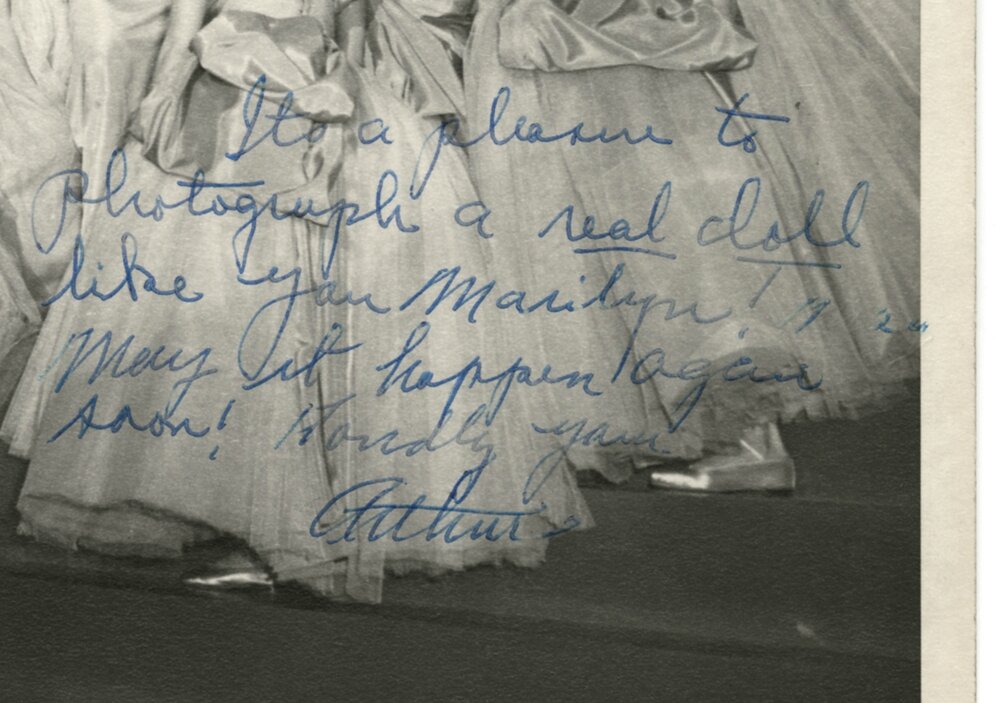 It's a pleasure to
photograph a real doll
like you Marilyn!
May it happen again
soon! Fondly yours
Arthur